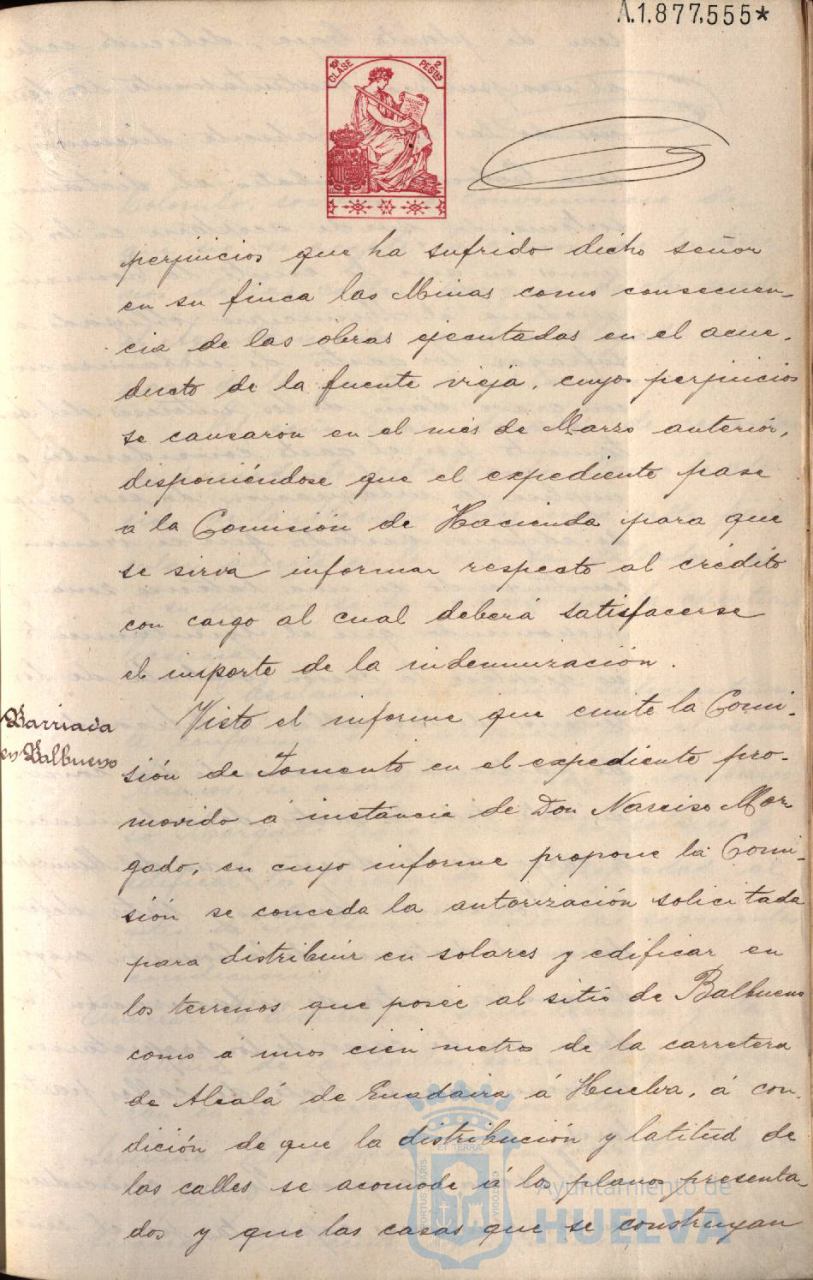 A.1.877.555*
10ª CLASE 2 PESTAS
perjuicios que ha sufrido dicho señor
en su finca las Minas como consecuen-
cia de las obras ejecutadas en el acue-
ducto de la fuente vieja, cuyos perjuicios
se causaron en el més de Marzo anteriór,
disponiéndose que el expediente pase
á la Comisión de Hacienda para que
se sirva informar respecto al crédito
con cargo al cual deberá satisfacerse
el importe de la indemnización.
Barriada
en Balbueno
Visto el informe que emite la Comi-
sión de Fomento en el expediente pro-
movido á instancia de Don Narciso Mor
gado, en cuyo informe propone la Comi-
sión se conceda la autorización solicitada
para distribuir en solares y edificar en
los terrenos que poseé al sitio de Balbueno
como á unos cien metros de la carretera
de Alcalá de Guadaira á Huelva, á con-
dición de que la distribución y latitud de
las calles se acomode á los planos presenta-
dos y que las casas que se construyan
Ayuntamiento de
HUELVA